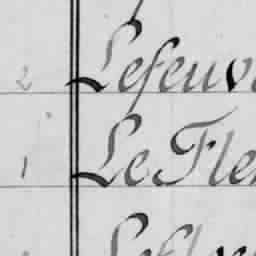 2 Lefeuv
1 Le Fle